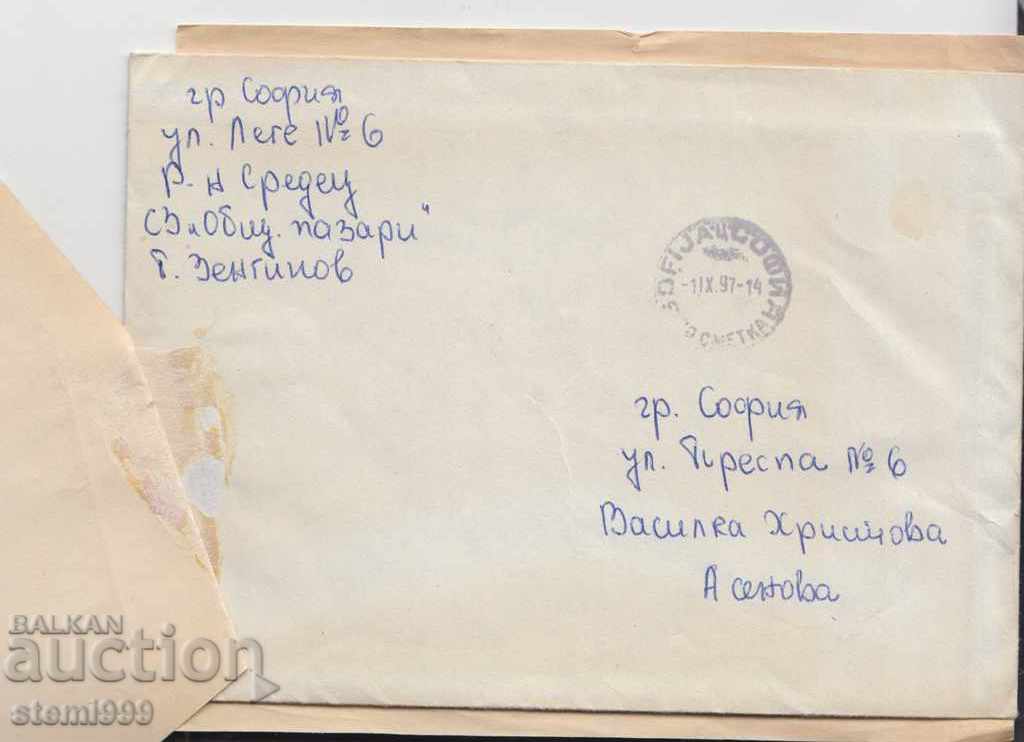 гр София
ул. Леге № 6
Р-н Средец
СЗ "Общ. пазари"
Т. Зенгинов
SOFIJA Ц СОФИЯ
-1IX.97-14
СМЕТКА
гр. София
ул. Преспа № 6
Василка Христова
Асенова
BALKAN
auction
stemi999